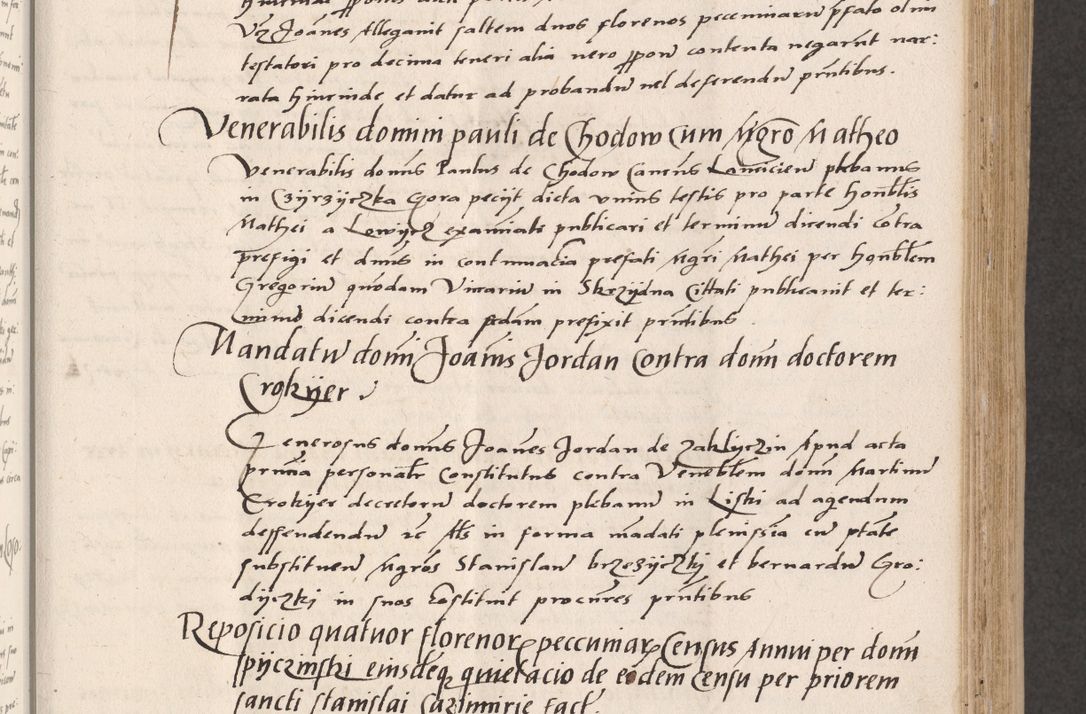 Vz Joanes Allegavit saltem duos florenos peccuniarum pfato olim
testatori pro decima teneri alia vero ppon contenta negarunt nar:
rata hincinde et datur ad probandum vel deferendum pntibus.
Venerabilis domini pauli de Chodow cum Mgro Matheo
Venerabilis domns Paulus de Chodow Cancus Lanciciens plebanus
in Czyrzyczka Gora peciit dicta unius testis pro parte honblis
Mathei a Lowycz examinati publicari et terminum dicendi contra
prefigi et dnus in contumacia prefati Mgri Mathei per honblem
Gregorium quondam Vicarium in Skrzydna Cittati publicavit et ter:
minum dicendi contra fedam prefixit pntibus
Mandatum domi Joanis Jordan contra dom doctorem
Crokyer
Generosus domns Joanes Jordan de Zakliczin Apud acta
pntia personalr Constitutus contra Veneblem dom Martinum
Crokyer decretorum doctorem plebanum in Liski ad agendum
deffendendum rc Als in forma madati plenissia cum ptate
substituen Mgros Stanislaum brzezyczky et bernardum Gro:
dyczky in suos costituit procures pntibus
Reposicio quatuor florenor peccuniar Census Annui per dom
spyczinski eiusdeq quietacio de eodem censu per priorem
sancti stanislai Cazimirie fact.